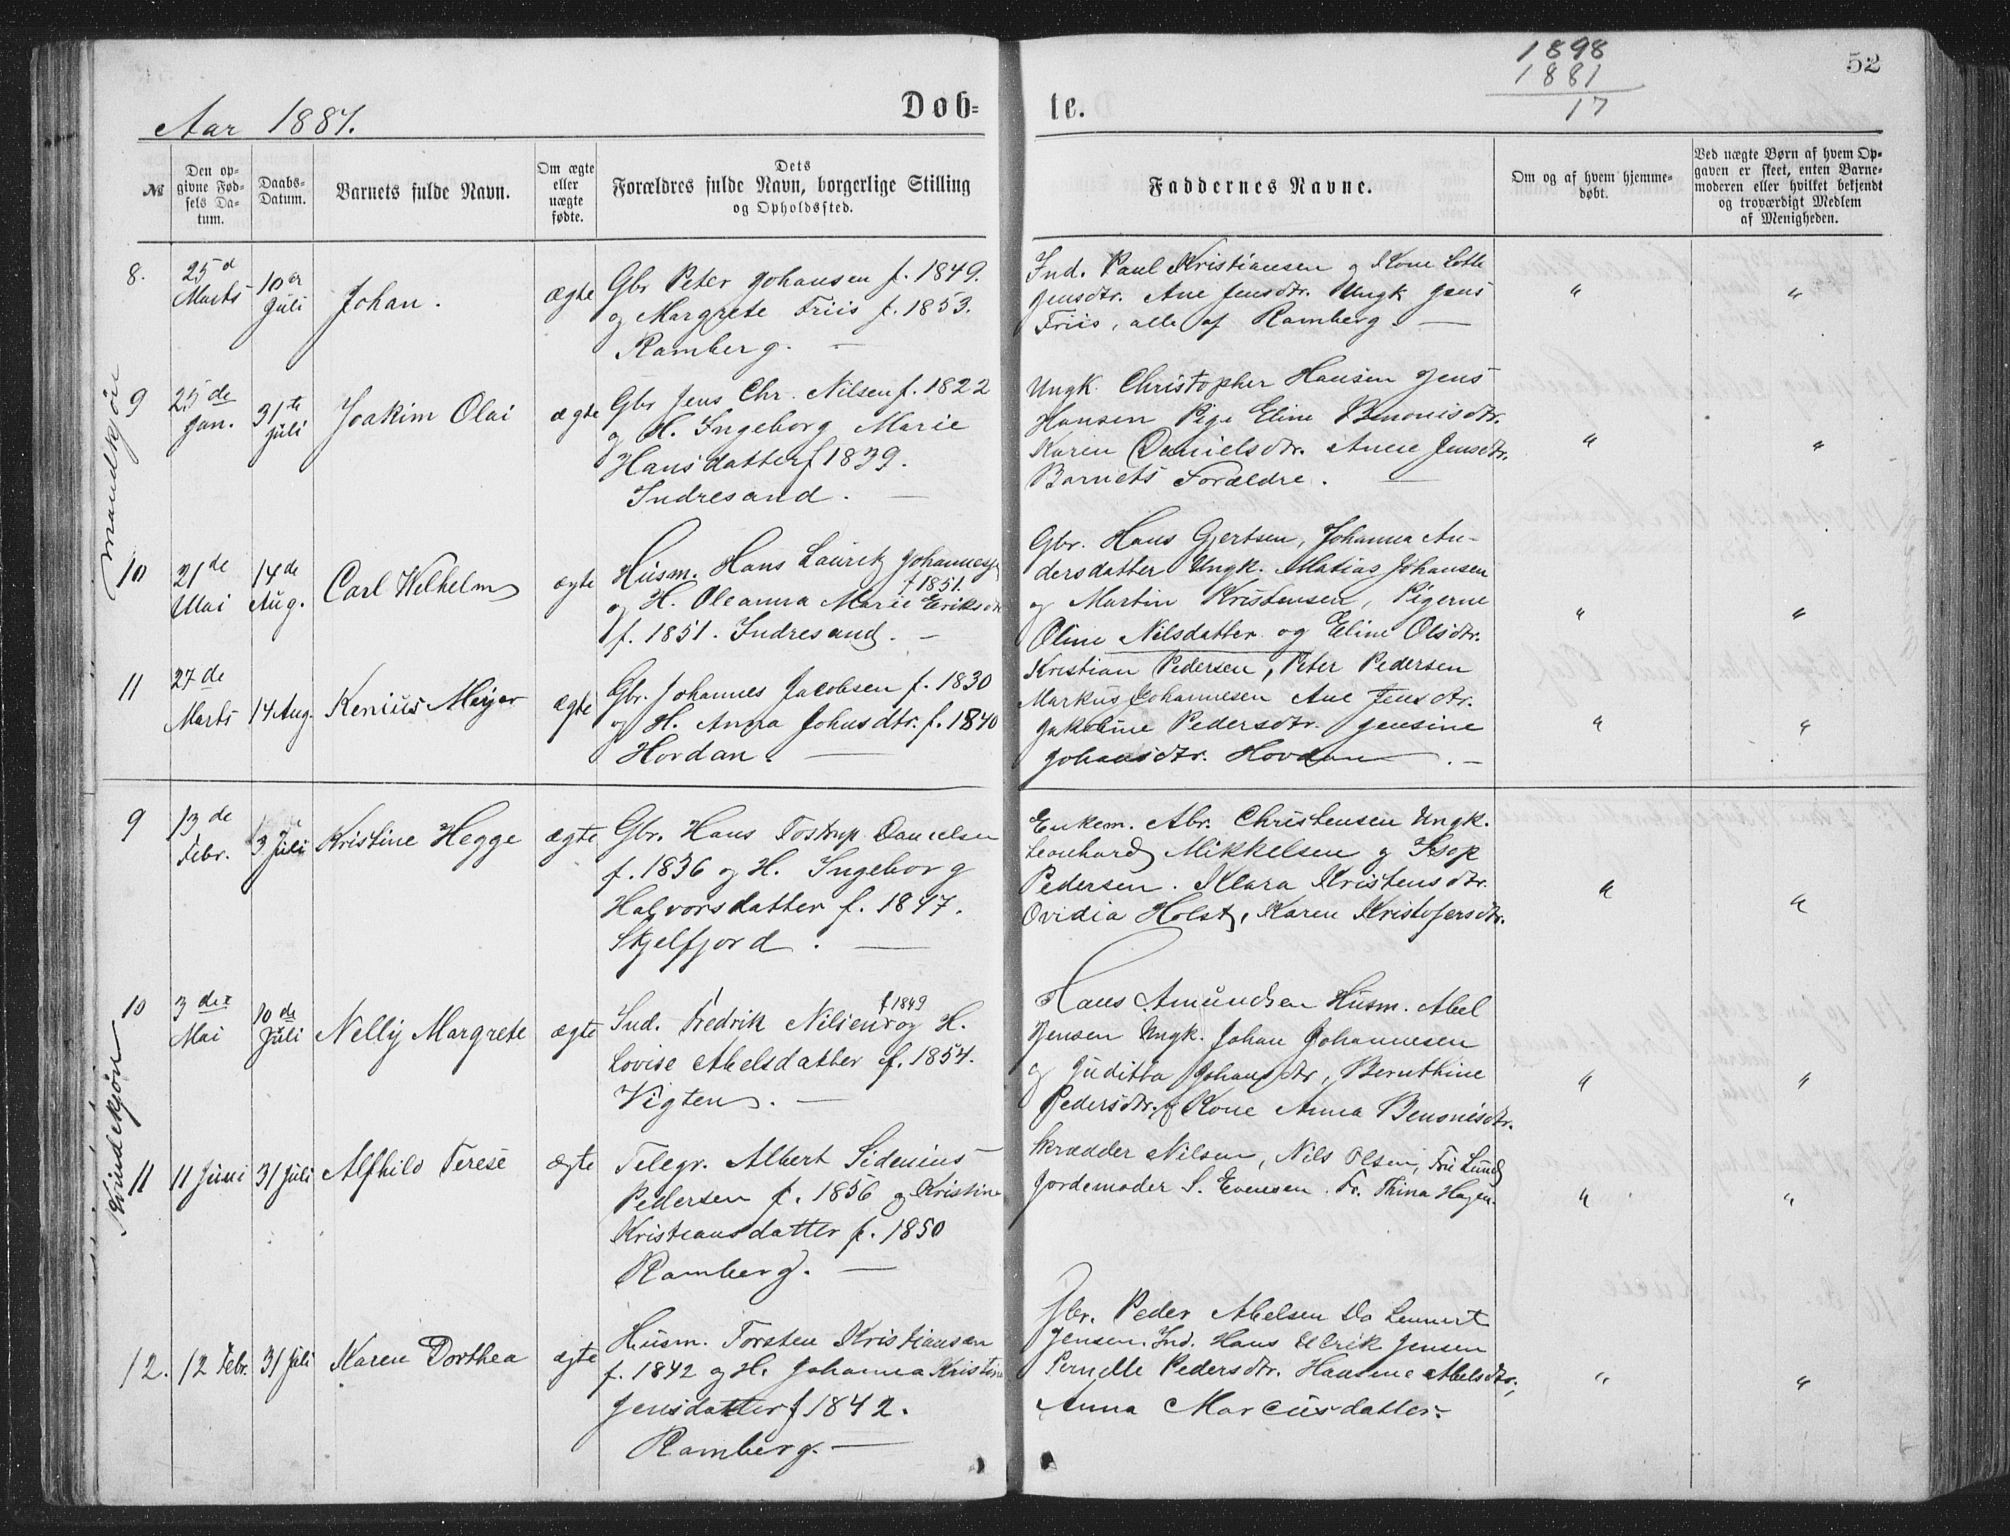 1898
1881
17
52
Aar 1881.
Døb-
te.
№
Den opgivne Fødsels Datum.
Daabs-Datum.
Barnets fulde Navn.
Om ægte eller uægte fødte.
Dets Forældres fulde Navn, borgerlige Stilling og Opholdssted.
Faddernes Navne.
Om og af hvem hjemmedøbt.
Ved uægte Børn af hvem Opgaven er skeet, enten Barnemoderen eller hvilket bekjendt og troværdigt Medlem af Menigheden.
Mandkjøn
8.
25de Marts
10de Juli
Johan.
ægte
Gbr Peter Johansen f. 1849.
og Margrete Friis f. 1853.
Ramberg. —
Ind. Paul Kristiansen og Kone Lotte
Jensdtr. Ane Jensdtr. Ungk Jens
Friis, alle af Ramberg. —
"
"
9
25de Jan.
31te Juli
Joakim Olai
ægte
Gbr Jens Chr. Nilsen f. 1822
og H. Ingeborg Marie
Hansdatter f 1839.
Indresand. —
Ungk. Christopher Hansen Jens
Hansen Pige Eline Benonisdtr.
Karen Danielsdtr. Anne Jensdtr.
Barnets Forældre. —
"
"
10
21de Mai
14de Aug.
Carl Welhelm
ægte
Husm. Hans Lauritz Johannes
f 1851.
og H. Oleanna Marie Eriksdtr
f. 1851. Indresand. —
Gbr. Hans Gjertsen, Johanna An-
dersdatter Ungk. Matias Johansen
og Martin Kristensen, Pigerne
Oline Nilsdatter og Eline Olsdtr.
"
"
11
27de Marts
14 Aug.
Kenius Meyer
ægte
Gbr. Johannes Jacobsen f. 1830
og H. Anna Johnsdtr. f. 1840
Hordan. —
Kristian Pedersen, Peter Pedersen
Markus Johannesen Ane Jensdtr.
Jakobine Pedersdtr. Jensine
Johansdtr. Hovdan. —
"
"
Kvindekjøn
9
13de Febr.
3 Juli
Kristine Hegge
ægte
Gbr. Hans Tostrup Danielsen
f. 1836 og H. Ingeborg
Halvorsdatter f. 1847.
Skjelfjord. —
Enkem. Abr. Christensen Ungk.
Leonhard Mikkelsen og Esop
Pedersen. Klara Kristensdtr.
Ovidia Holst, Karen Kristofersdtr.
"
"
10
3die Mai
10de Juli
Nelly Margrete
ægte
f 1849
Ind. Fredrik Nilsen og H.
Lovise Abelsdatter f. 1854.
Vigten. —
Hans Amundsen Husm. Abel
Jensen Ungk. Johan Johannesen
og Juditha Johansdtr, Bernthine
Pedersdtr. og Kone Anna Benonisdtr.
"
"
11
11 Juni
31 Juli
Alfhild Terese
ægte
Telegr. Albert Sidenius
Pedersen f. 1856 og Kristine
Kristiansdatter f. 1850
Ramberg. —
Skrædder Nilsen, Nils Olsen, Fru Lund
Jordemoder S. Evensen. Fr. Thina Hagen.
"
"
12.
12 Febr.
31 Juli
Karen Dorthea
ægte
Husm. Torsten Kristiansen
f. 1842 og H. Johanna Kristine
Jensdatter f 1842.
Ramberg. —
Gbr. Peder Abelsen Do Lennert
Jensen. Ind. Hans Elrik Jensen
Pernelle Pedersdtr. Hansine Abelsdtr,
Anna Marcusdatter.
"
"